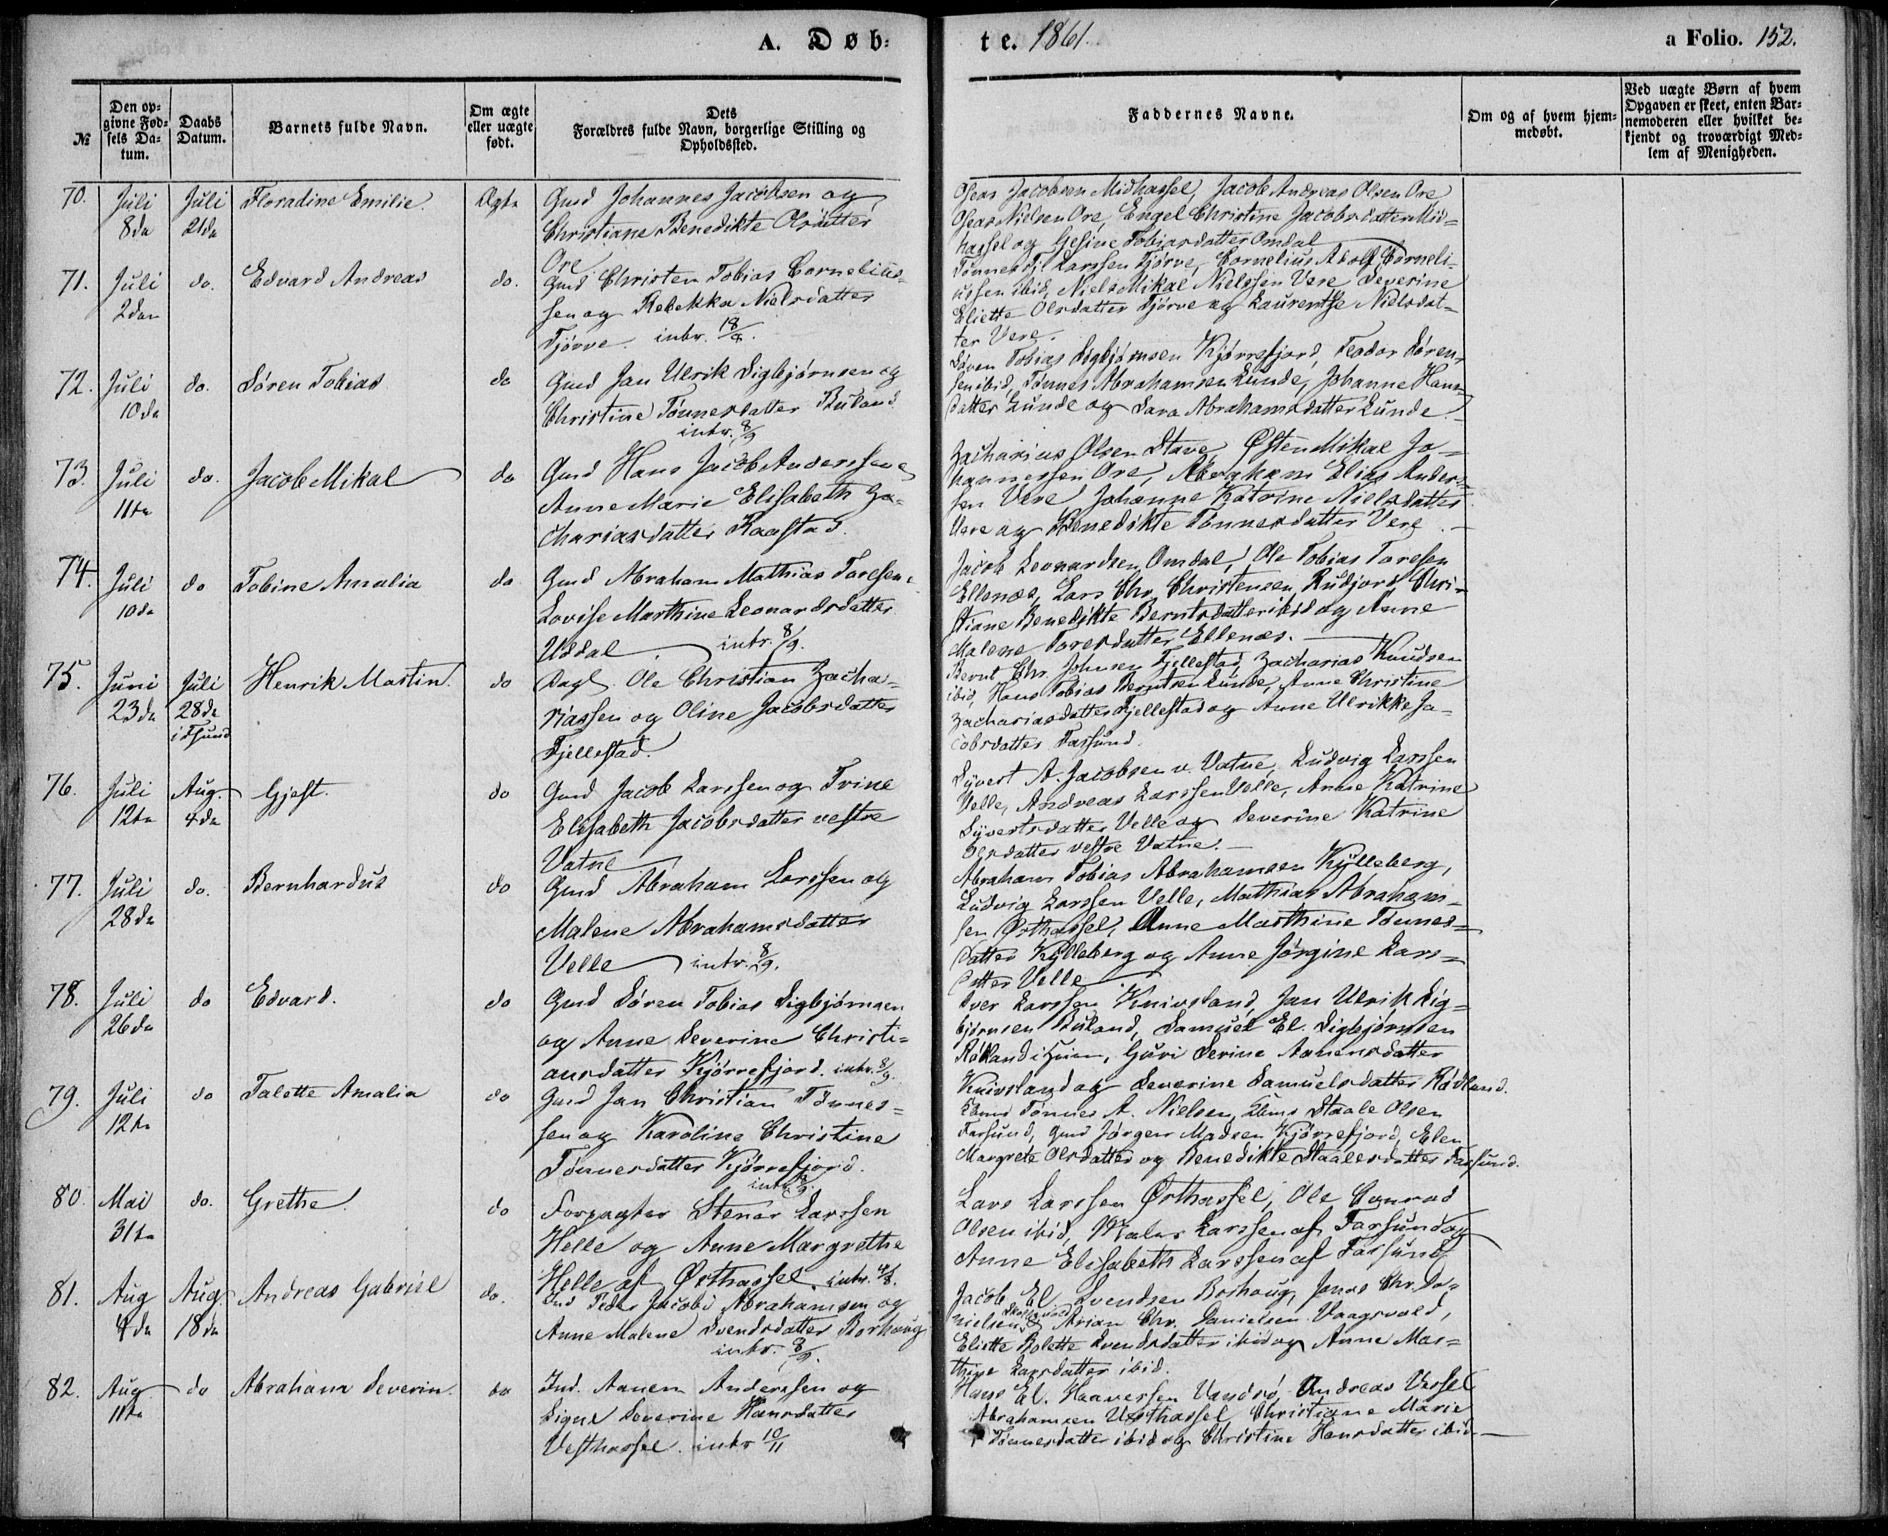 A. Døb=
te. 1861.
a Folio. 152.
№
Den op=
givne Fød=
sels Da=
tum.
Daabs
Datum.
Barnets fulde Navn.
Om ægte
eller uægte
født.
Dets
Forældres fulde Navn, borgerlige Stilling og
Opholdssted.
Faddernes Navne.
Om og af hvem hjem=
medøbt.
Ved uægte Børn af hvem
Opgaven er skeet, enten Bar=
nemoderen eller hvilket be=
kjendt og troværdigt Med=
lem af Menigheden.
70. Juli 8de Juli 21de Floradine Emilie. Ægte
Gmd Johannes Jacobsen og
Christiane Benedikte Olsdatter
Ore
Oseas Jacobsen Midhassel, Jacob Andreas Olsen Ore
Oseas Nielsen Ore, Engel Christine Jacobsdatter Mid=
hassel og Gesine Tobiasdatter Omdal
71. Juli 2den do. Edvard Andreas do.
Gmd Christen Tobias Cornelius=
sen og Rebekka Nielsdatter
Tjørve. intr. 18/8.
Tønnes Tj. Larssen Tjørve, Cornelius Adolf Corneli=
ussen ibid, Niels Mikal Nielssen Vere Severine
Eliette Olsdatter Tjørve og Laurentse Nielsdat=
ter Vere.
72. Juli 10de do. Søren Tobias do
Gmd Jan Ulrik Sigbjørnsen og
Christine Tønnesdatter Buland
intr. 8/9
Søren Tobias Sigbjørnsen Kjørrefjord, Teodor Søren=
sen ibid, Tønnes Abrahamsen Lunde, Johanne Hans=
datter Lunde og Sara Abrahamsdatter Lunde.
73. Juli 11te do. Jacob Mikal do
Gmd Hans Jacob Anderssen og
Anne Marie Elisabeth Za=
chariasdatter Raastad.
Zacharias Olsen Stave, Østen Mikal Jo=
hannessen Ore, Abraham Elias Anders=
sen Vere, Johanne Katrine Nielsdatter
Vere og Benedikte Tønnesdatter Vere.
74. Juli 10de do Tobine Amalia do
Gmd Abraham Mathias Toresen
Lovise Marthine Leonardsdatter
Uddal intr. 8/9.
Jacob Leonardsen Omdal, Ole Tobias Toresen
Ellenæs, Lars Chr. Christensen Rudjord, Chri=
stiane Benedikte Berntsdatter ibid og Anne
Malene Toresdatter Ellenæs.
75. Juni 23de Juli 28de i Fsund Henrik Martin. do
Dagl Ole Christian Zacha=
riassen og Oline Jacobsdatter
Fjellestad.
Bernt Chr. Johnsen Fjellestad, Zacharias Knudsen
ibid, Hans Tobias Berntsen Lunde, Anne Christine
Zachariasdatter Fjellestad og Anne Ulrikke Ja=
cobsdatter Farsund.
76. Juli 12te Aug. 4de Gjest. do
Gmd Jacob Larssen og Trine
Elisabeth Jacobsdatter vestre
Vatne
Syvert A. Jacobsen v. Vatne, Ludvig Larssen
Velle, Andreas Larssen Velle, Anne Katrine
Syvertsdatter Velle og Severine Katrine
Olsdatter vestre Vatne.
77. Juli 28de do. Bernhardus do
Gmd Abraham Larssen og
Malene Abrahamsdatter
Velle intr. 8/9.
Abraham Tobias Abrahamsen Kylleberg,
Ludvig Larssen Velle, Mathias Abraham=
sen Østhassel, Anne Marthine Tønnes=
datter Kylleberg og Anne Jørgine Lars=
datter Velle
78. Juli 26de do Edvard. do
Gmd Søren Tobias Sigbjørnsen
og Anne Severine Christi=
ansdatter Kjørrefjord. intr. 8/9.
Iver Larssen Knivsland, Jan Ulrik Sig=
bjørnsen Buland, Samuel El. Sigbjørnsen
Røkland i Heien, Guri Serine Aanensdatter
Knivsland og Severine Samuelsdatter Rødland.
79. Juli 12te do Talette Amalia do
Gmd Jan Christian Tønnes=
sen og Karoline Christine
Tønnesdatter Kjørrefjord.
Tønnes A. Nielsen, Staale Olsen
Farsund, Gmd Jørgen Madsen Kjørrefjord, Elen
Margrete Olsdatter og Benedikte Staalesdatter Farsund.
80. Mai 31te do. Grethe. do
Forpagter Stener Larssen
Helle og Anne Margrethe
Helle af Østhassel. intr. 4/8.
Lars Larssen Østhassel, Ole Conrad
Olsen ibid, Larssen af Farsund og
Anne Elisabeth Larssen af Farsund
81. Aug 4de Aug. 18de Andreas Gabriel do.
Ind Peder Jacob Abrahamsen og
Anne Malene Svendsdatter Borhaug
intr. 8/9.
Jacob El. Svendsen Borhaug, Jonas Chr. Da=
nielsen Arian Chr. Danielsen Vaagsvold,
Eliette Bolette Svendsdatter ibid og Anne Mar=
thine Larsdatter ibid.
82. Aug 11te do Abraham Severin. do
Ind. Aanen Anderssen og
Signe Severine Hansdatter
Vesthassel. intr 10/11
Hans El. Haaversen Vandsø, Andreas Vessel
Abrahamsen Vesthassel, Christiane Marie
Tønnesdatter ibid og Christine Hansdatter ibid